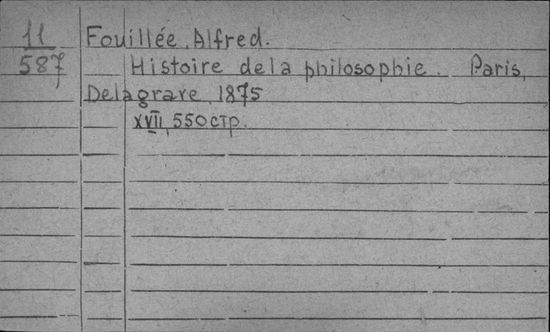 11
587
Fouillée, Alfred.
Histoire de la philosophie. Paris,
Delagrave, 1875
XVII, 550 стр.